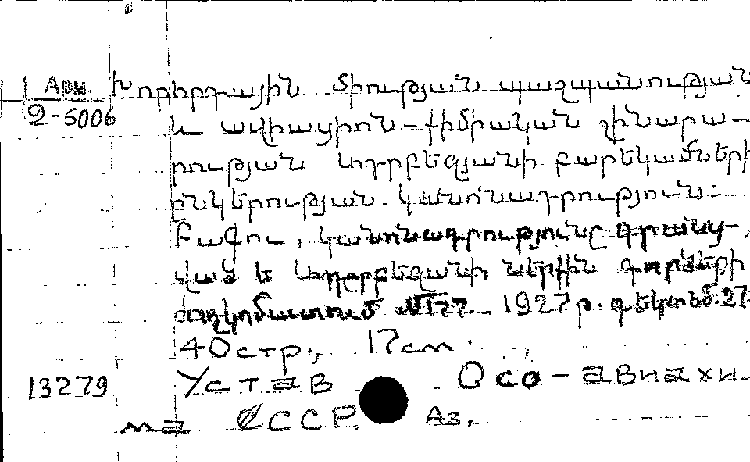 Арм. Խորհրդային Միության պաշպանության
2-5006 և ավիացիոն-քիմիական շինարա-
րության Ադրբեջանի բարեկամների
ընկերության կանոնադրություն:
Բագու, կանոնագրությունը գրանց-
ված է Ադրբեջանի ներքին գործերի
1927թ. դեկտեմ. 27
40 стр., 17 см.
13279 Устав Осо-авиахи-
ма СССР. Аз.